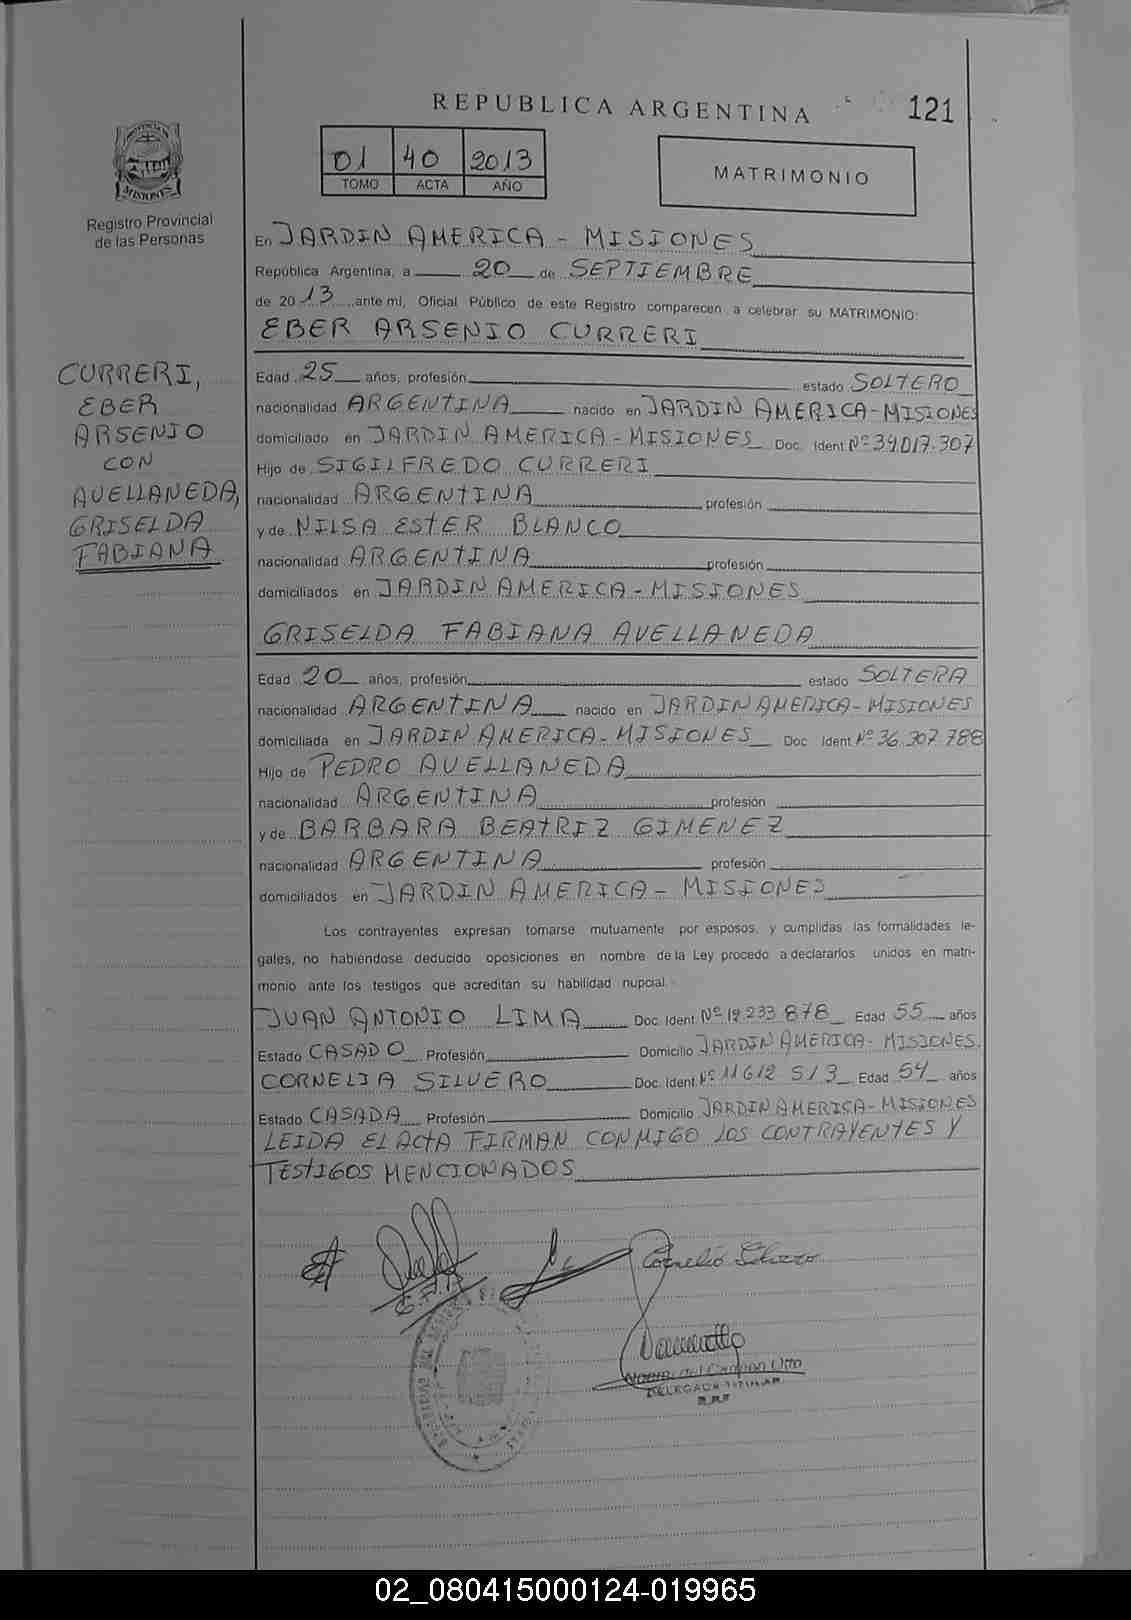 REPUBLICA ARGENTINA
121
01 40 2013
TOMO ACTA AÑO
MATRIMONIO
MISIONES
Registro Provincial
de las Personas
En JARDIN AMERICA - MISIONES
República Argentina, a 20 de SEPTIEMBRE
de 2013 ante mí, Oficial Público de este Registro comparecen a celebrar su MATRIMONIO:
EBER ARSENIO CURRERI
CURRERI,
EBER
ARSENIO
CON
AVELLANEDA,
GRISELDA
FABIANA
Edad 25 años, profesión estado SOLTERO
nacionalidad ARGENTINA nacido en JARDIN AMERICA-MISIONES
domiciliado en JARDIN AMERICA-MISIONES Doc. Ident. Nº 34.017.307
Hijo de SIGILFREDO CURRERI
nacionalidad ARGENTINA profesión
y de NILSA ESTER BLANCO
nacionalidad ARGENTINA profesión
domiciliados en JARDIN AMERICA-MISIONES
GRISELDA FABIANA AVELLANEDA
Edad 20 años, profesión estado SOLTERA
nacionalidad ARGENTINA nacido en JARDIN AMERICA-MISIONES
domiciliada en JARDIN AMERICA-MISIONES Doc Ident Nº 36.307.788
Hijo de PEDRO AVELLANEDA
nacionalidad ARGENTINA profesión
y de BARBARA BEATRIZ GIMENEZ
nacionalidad ARGENTINA profesión
domiciliados en JARDIN AMERICA - MISIONES
Los contrayentes expresan tomarse mutuamente por esposos, y cumplidas las formalidades le-
gales, no habiéndose deducido oposiciones en nombre de la Ley procedo a declararlos unidos en matri-
monio ante los testigos que acreditan su habilidad nupcial.
JUAN ANTONIO LIMA Doc. Ident. Nº 878 Edad 55 años
Estado CASADO Profesión Domicilio JARDIN AMERICA-MISIONES
CORNELIA SILVERO Doc. Ident. Nº 11612 513 Edad 54 años
Estado CASADA Profesión Domicilio JARDIN AMERICA-MISIONES
LEIDA EL ACTA FIRMAN CONMIGO LOS CONTRAYENTES Y
TESTIGOS MENCIONADOS
DELEGADA TITULAR
02_080415000124-019965